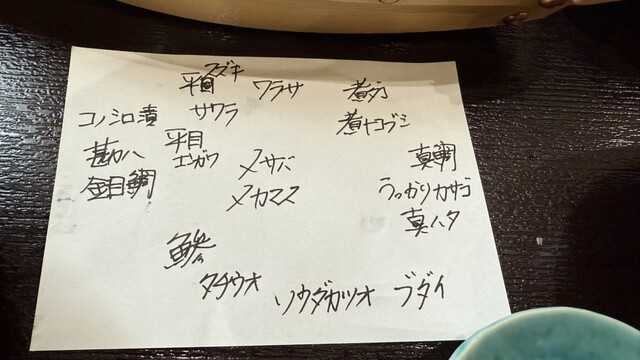 スズキ
平目
ワラサ
煮タコ
コノシロ漬
サワラ
煮ヤコブシ
勘八
平目
エンガワ
〆サバ
真鯛
金目鯛
〆カマス
うっかりカサゴ
真ハタ
鯵
タチウオ
ソウダカツオ
ブダイ